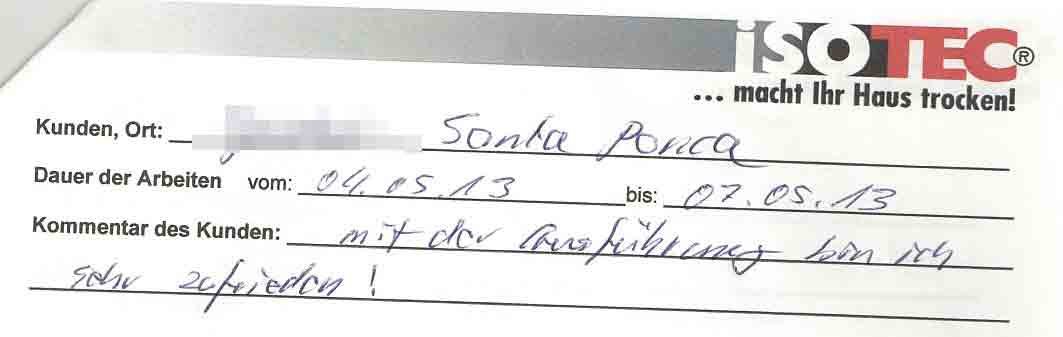 ISOTEC®
... macht Ihr Haus trocken!
Kunden, Ort: Santa Ponca
Dauer der Arbeiten vom: 04.05.13 bis: 07.05.13
Kommentar des Kunden: mit der Ausführung bin ich
sehr zufrieden!